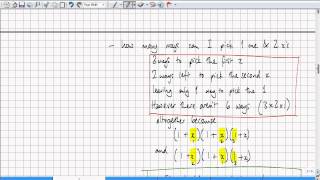 - how many ways can I pick 1 one & 2 x's
3 ways to pick the first x
2 ways left to pick the second x
leaving only 1 way to pick the 1
However there aren't 6 ways (3×2×1)
altogether because
(1+x)(1+x)(1+x)
and
(1+x)(1+x)(1+x)